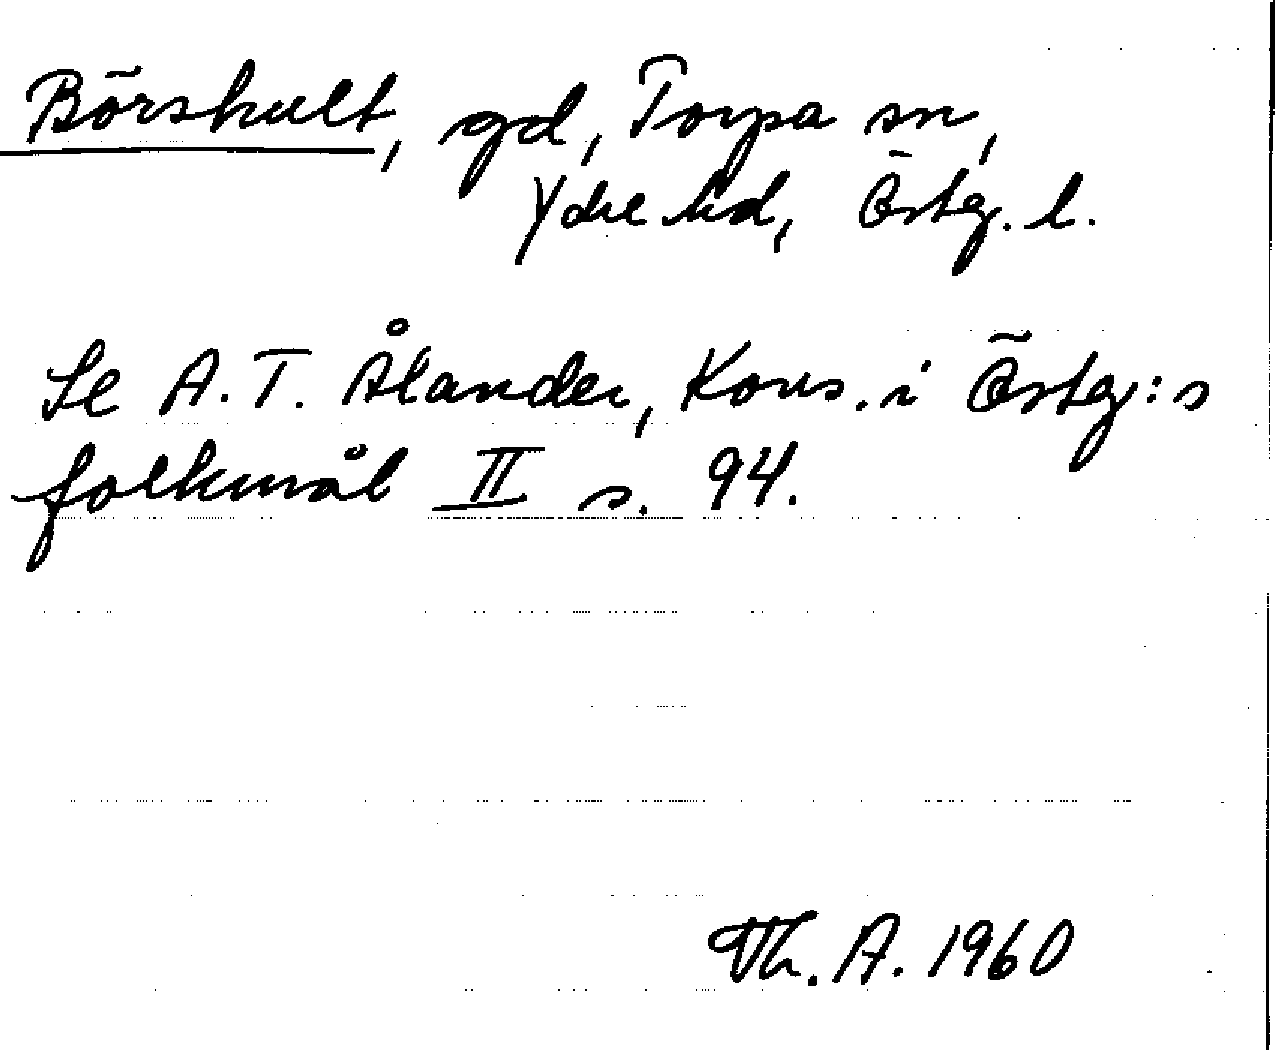 Börskult, gd, Torpa sn,
Ydre hd, Östg. l.
Se A. T. Ålander, Kons. i Östg:s
folkmål II s. 94.
Th. A. 1960